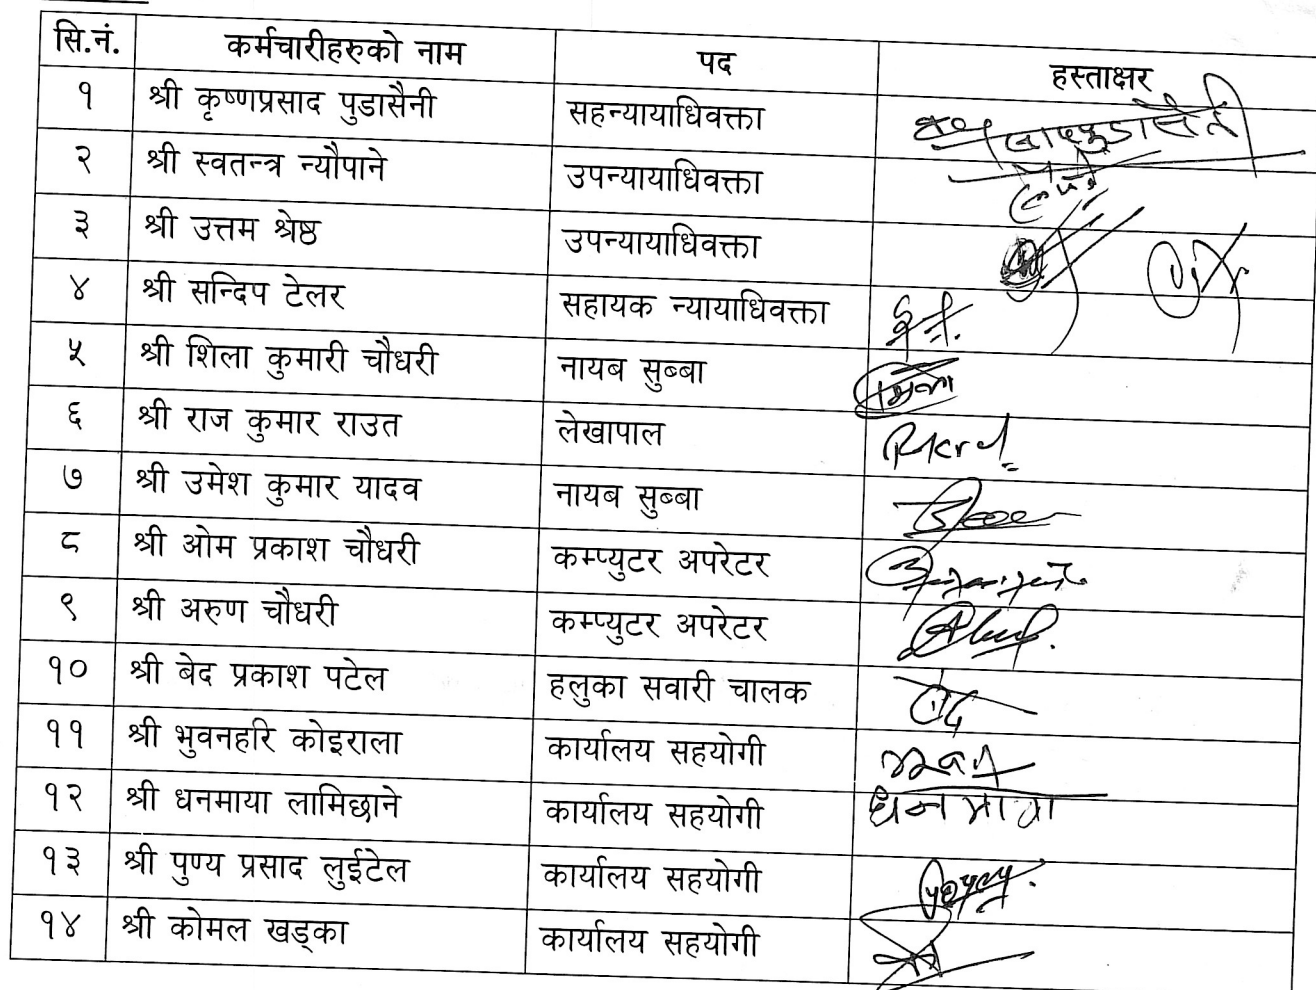 सि.नं. कर्मचारीहरुको नाम पद हस्ताक्षर
१ श्री कृष्णप्रसाद पुडासैनी सहन्यायाधिवक्ता
२ श्री स्वतन्त्र न्यौपाने उपन्यायाधिवक्ता
३ श्री उत्तम श्रेष्ठ उपन्यायाधिवक्ता
४ श्री सन्दिप टेलर सहायक न्यायाधिवक्ता
५ श्री शिला कुमारी चौधरी नायब सुब्बा
६ श्री राज कुमार राउत लेखापाल
७ श्री उमेश कुमार यादव नायब सुब्बा
८ श्री ओम प्रकाश चौधरी कम्प्युटर अपरेटर
९ श्री अरुण चौधरी कम्प्युटर अपरेटर
१० श्री बेद प्रकाश पटेल हलुका सवारी चालक
११ श्री भुवनहरि कोइराला कार्यालय सहयोगी
१२ श्री धनमाया लामिछाने कार्यालय सहयोगी धनमाया
१३ श्री पुण्य प्रसाद लुईटेल कार्यालय सहयोगी
१४ श्री कोमल खड्का कार्यालय सहयोगी